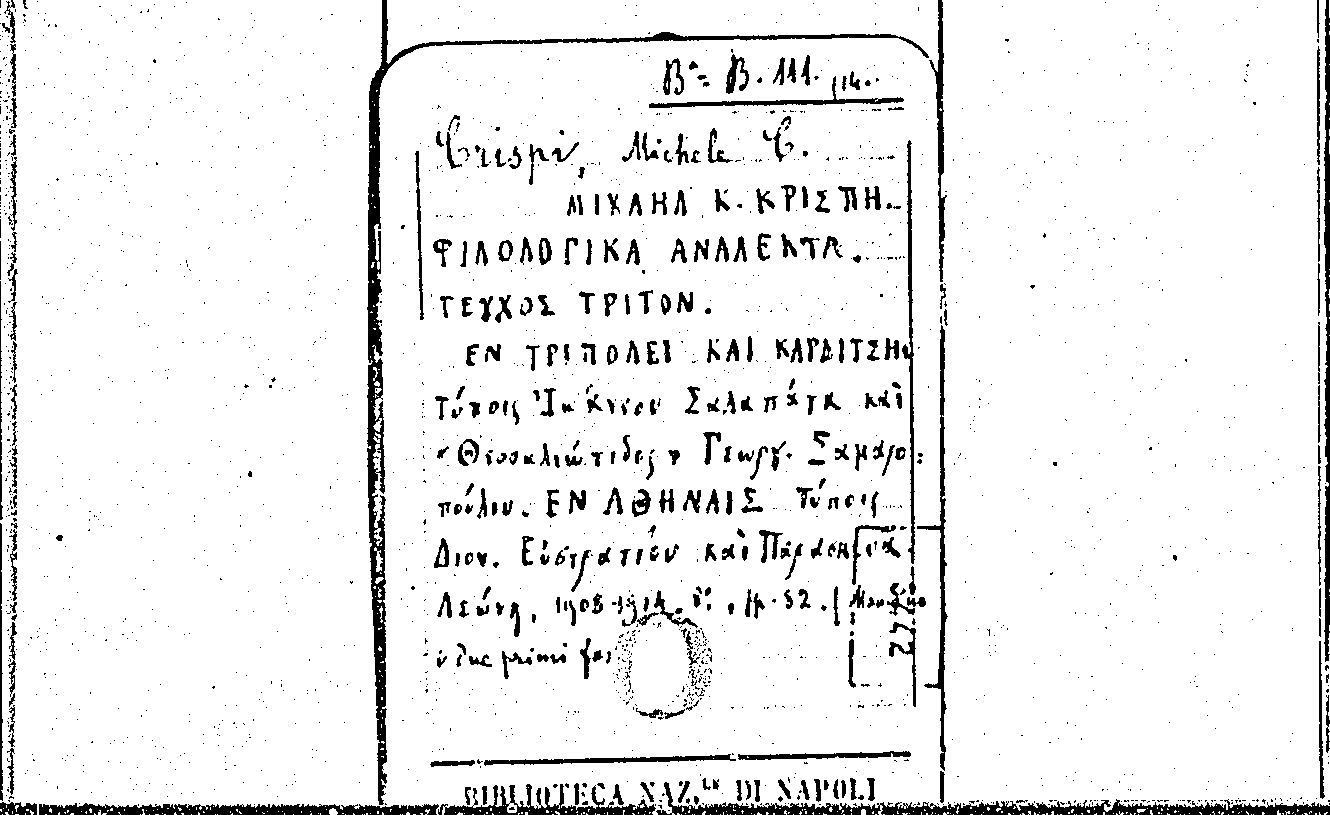 Bª= B. 111. (14..
Crispi, Michele C.
ΜΙΧΑΗΛ Κ. ΚΡΙΣΠΗ.
ΦΙΛΟΛΟΓΙΚΑ ΑΝΑΛΕΚΤΑ.
ΤΕΥΧΟΣ ΤΡΙΤΟΝ.
ΕΝ ΤΡΙΠΟΛΕΙ ΚΑΙ ΚΑΡΔΙΤΣΗ
Τύποις Σαλαπάτα καὶ
"Θεσσαλιώτιδος" Γεωργ. Σαμαρο:
πούλου. ΕΝ ΑΘΗΝΑΙΣ Τύποις
Διον. Εὐστρατίου καὶ Παρασκευᾶ
Λεώνη, 1908-1914. 8º. , pp. 52. (
i due primi fas
BIBLIOTECA NAZ.LE DI NAPOLI